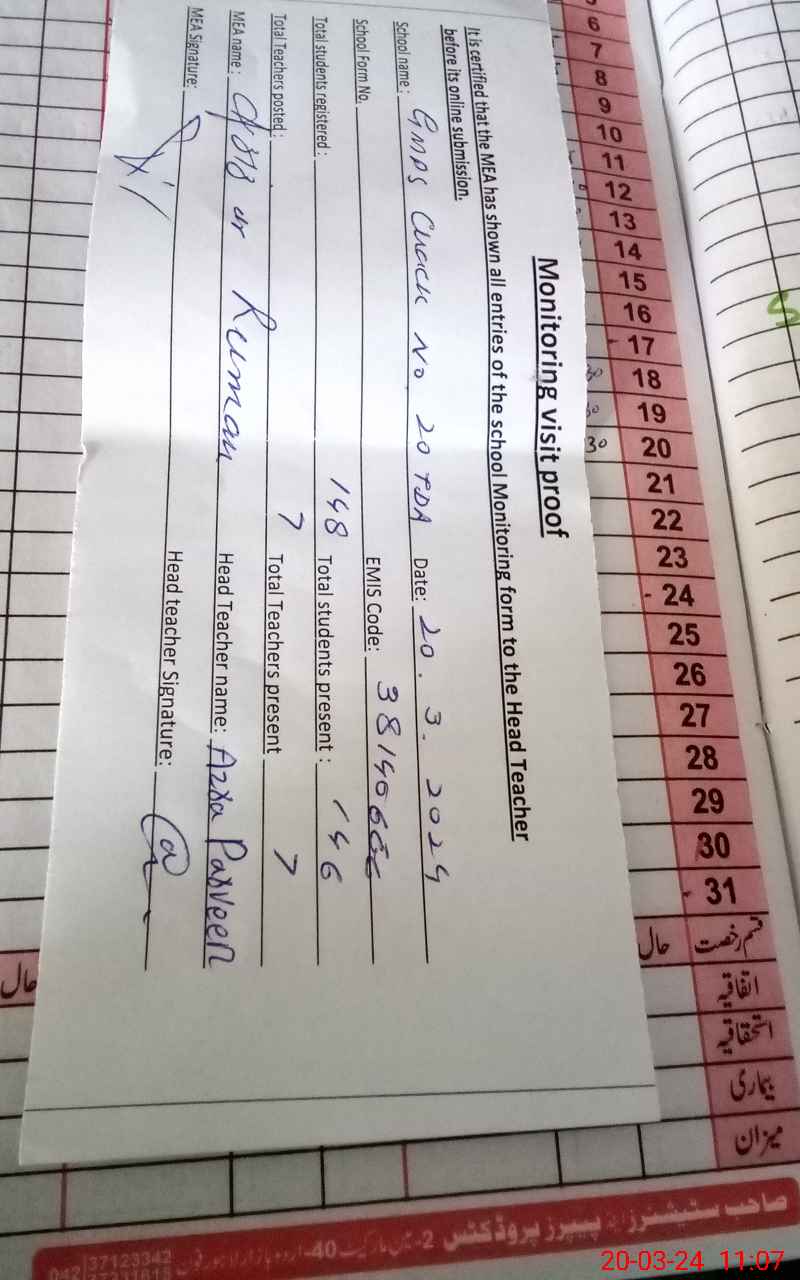 Monitoring visit proof
It is certified that the MEA has shown all entries of the school Monitoring form to the Head Teacher
before its online submission.
School name: GMPS Chack No 20 TDA Date: 20. 3. 2024
School Form No. EMIS Code:
Total students registered: 148 Total students present: 146
Total Teachers posted: 7 Total Teachers present 7
MEA name: ur Ruman Head Teacher name: Azra Parveen
MEA Signature: Head teacher Signature:
6 7 8 9 10 11 12 13 14 15 16 17 18 19 20 21 22 23 24 25 26 27 28 29 30 31
30
قسم رخصت حال
اتفاقیہ
استحقاقیہ
بیماری
میزان
حال
صاحب سٹیشنرز پیپرز پروڈکٹس
37123342
20-03-24 11:07